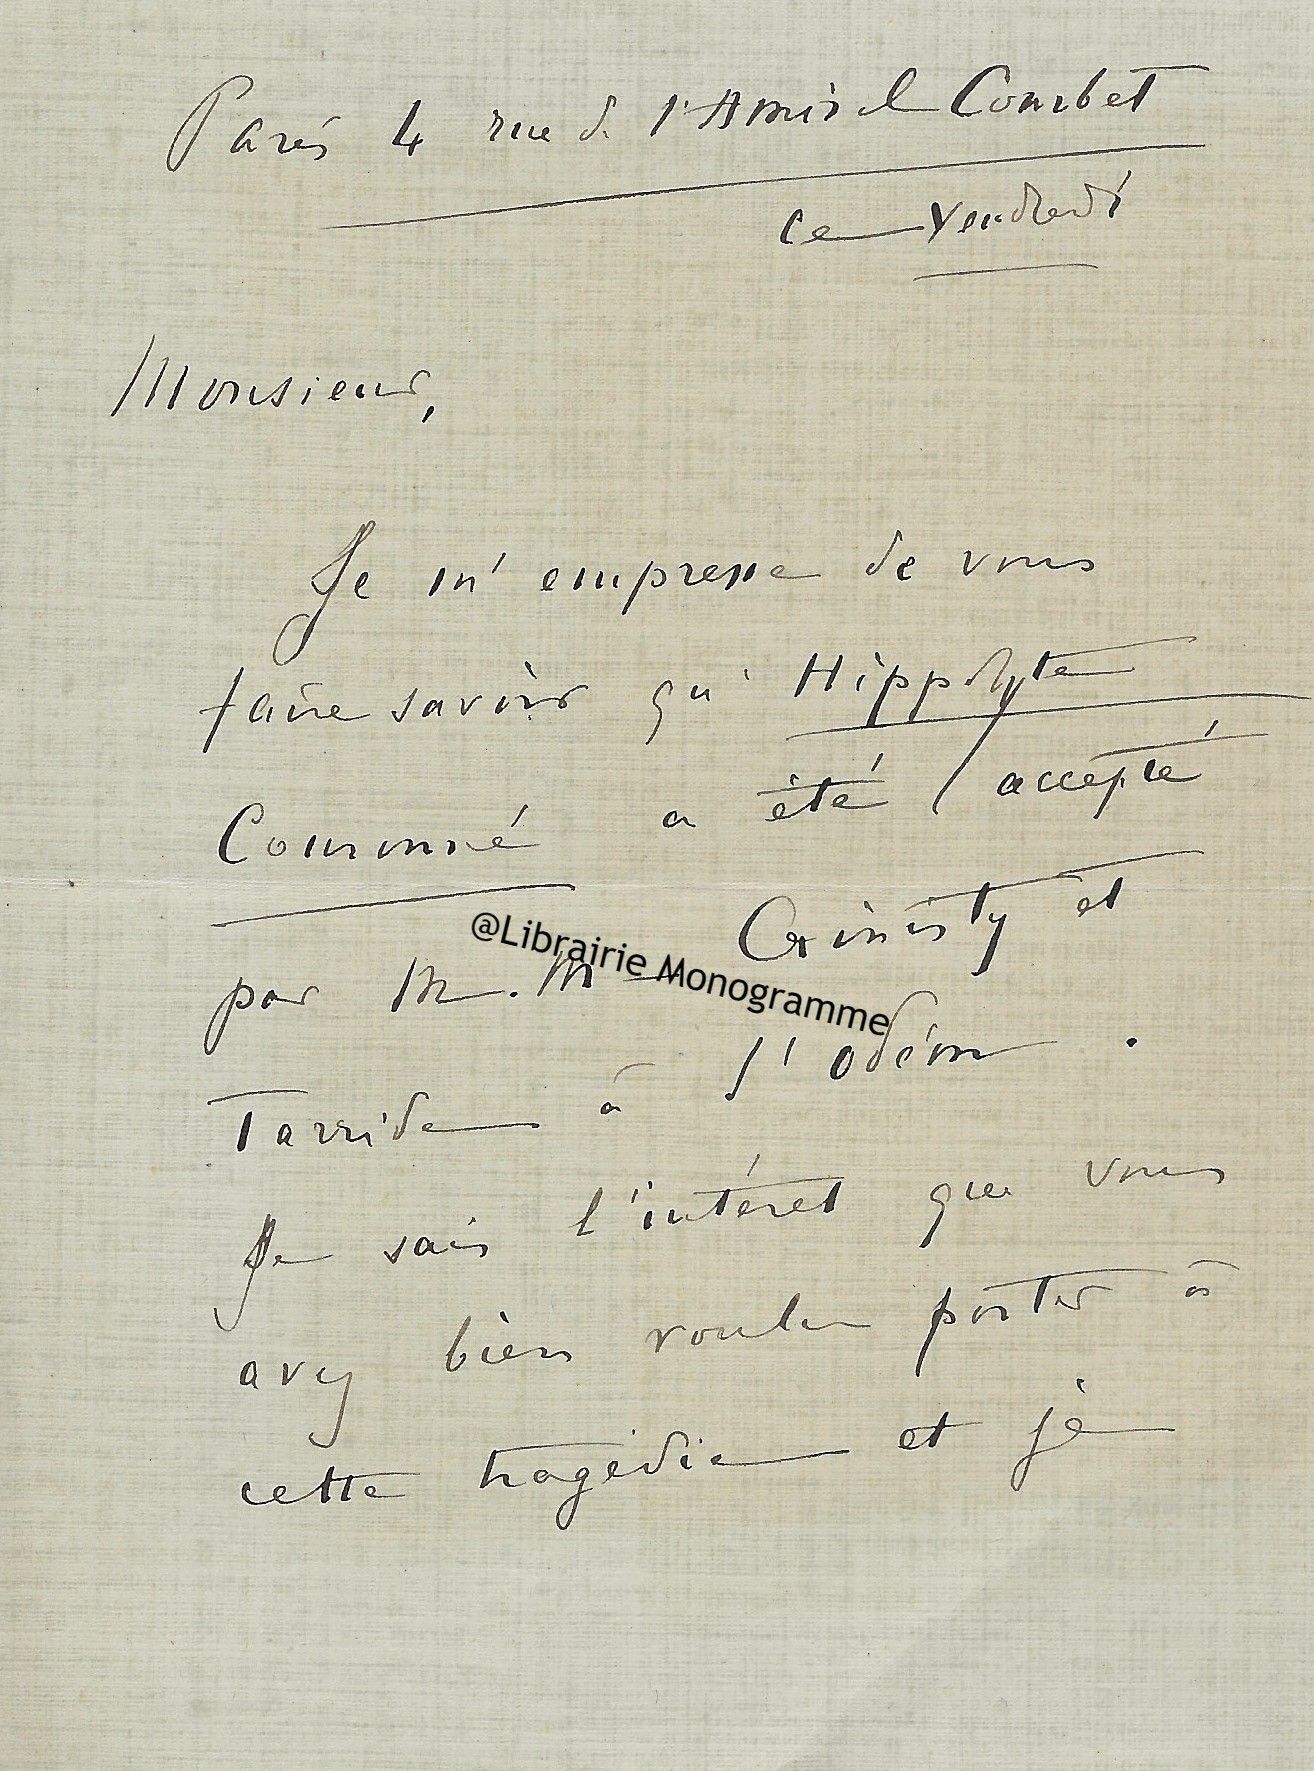 Paris 4 rue de l'Amiral Courbet
ce vendredi
Monsieur,
Je m'empresse de vous
faire savoir qu'Hippolyte
Couronné a été accepté
@Librairie Monogramme
par M.M Ginisty et
Tarride à l'odéon.
Je sais l'intéret que vous
avez bien voulu porter à
cette tragédie et je